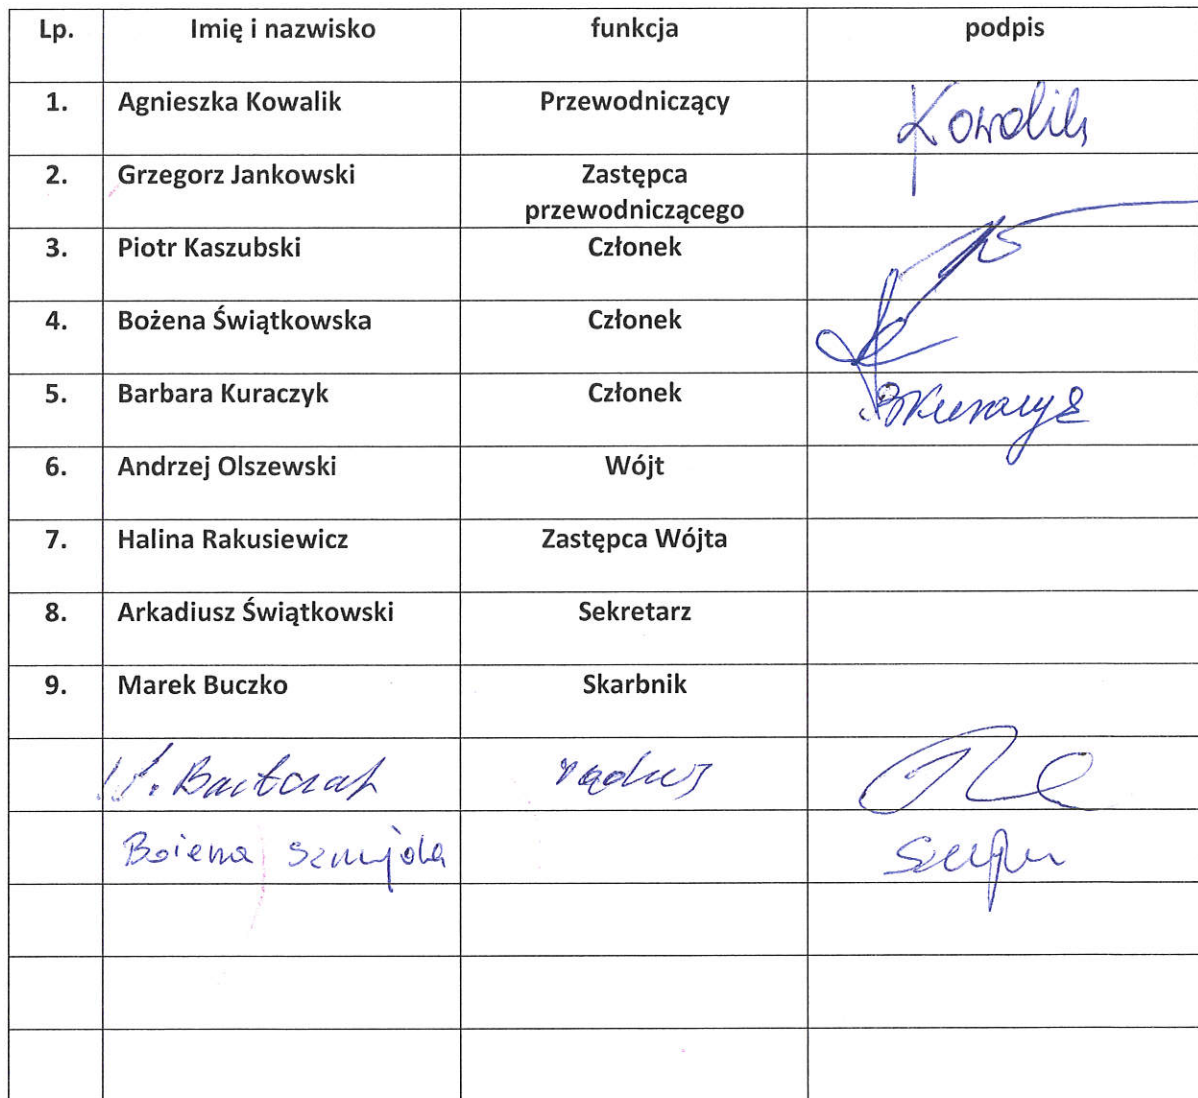 Lp. Imię i nazwisko funkcja podpis
1. Agnieszka Kowalik Przewodniczący Kowalik
2. Grzegorz Jankowski Zastępca
przewodniczącego
3. Piotr Kaszubski Członek
4. Bożena Świątkowska Członek
5. Barbara Kuraczyk Członek BKuraczyk
6. Andrzej Olszewski Wójt
7. Halina Rakusiewicz Zastępca Wójta
8. Arkadiusz Świątkowski Sekretarz
9. Marek Buczko Skarbnik
Bartczak radny
Bożena